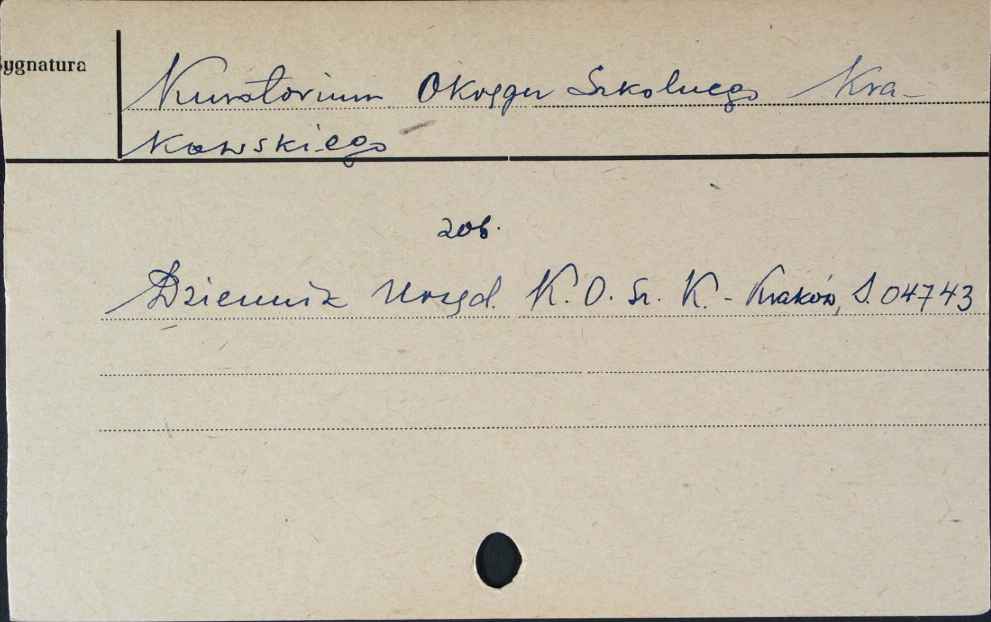 Sygnatura
Kuratorium Okręgu Szkolnego Kra-
kowskiego
zob.
Dziennik Urzęd. K. O. Sz. K. - Kraków, S. 04743